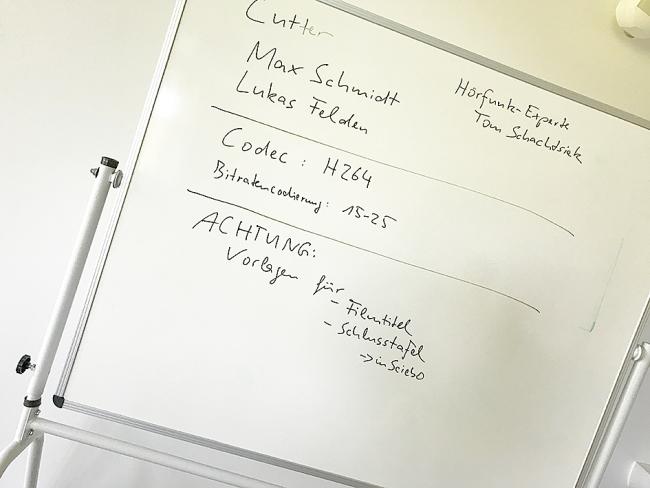 Cutter
Max Schmidt
Lukas Felden
Hörfunk-Experte
Tom Schachtsiek
Codec: H264
Bitratencodierung: 15-25
ACHTUNG:
Vorlagen für
- Filmtitel
- Schlusstafel
-> in Sciebo